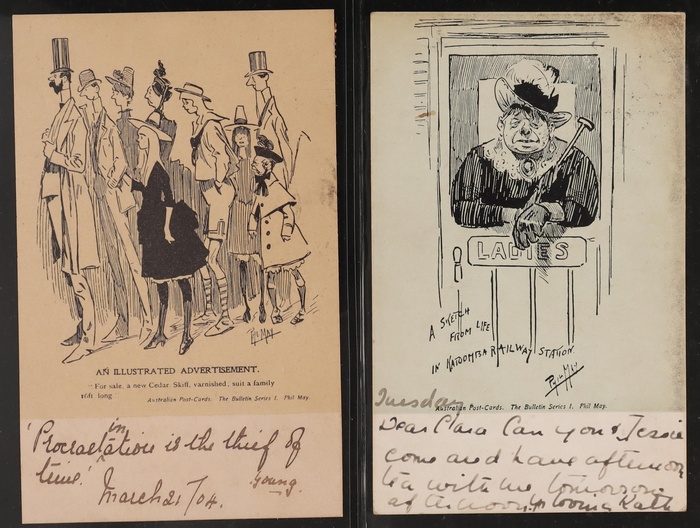 PHIL MAY
AN ILLUSTRATED ADVERTISEMENT.
"For sale, a new Cedar Skiff, varnished, suit a family
16ft long
Australian Post-Cards. The Bulletin Series 1. Phil May.
in
'Procrastation is the thief of
time.' Young.
March 21/04.
LADIES
A SKETCH
FROM LIFE
IN KATOOMBA RAILWAY STATION
PHIL MAY
Tuesday
Australian Post-Cards. The Bulletin Series 1. Phil May.
Dear Clara Can you & Jessie
come and have afternoon
tea with me tomorrow
afternoon Kath